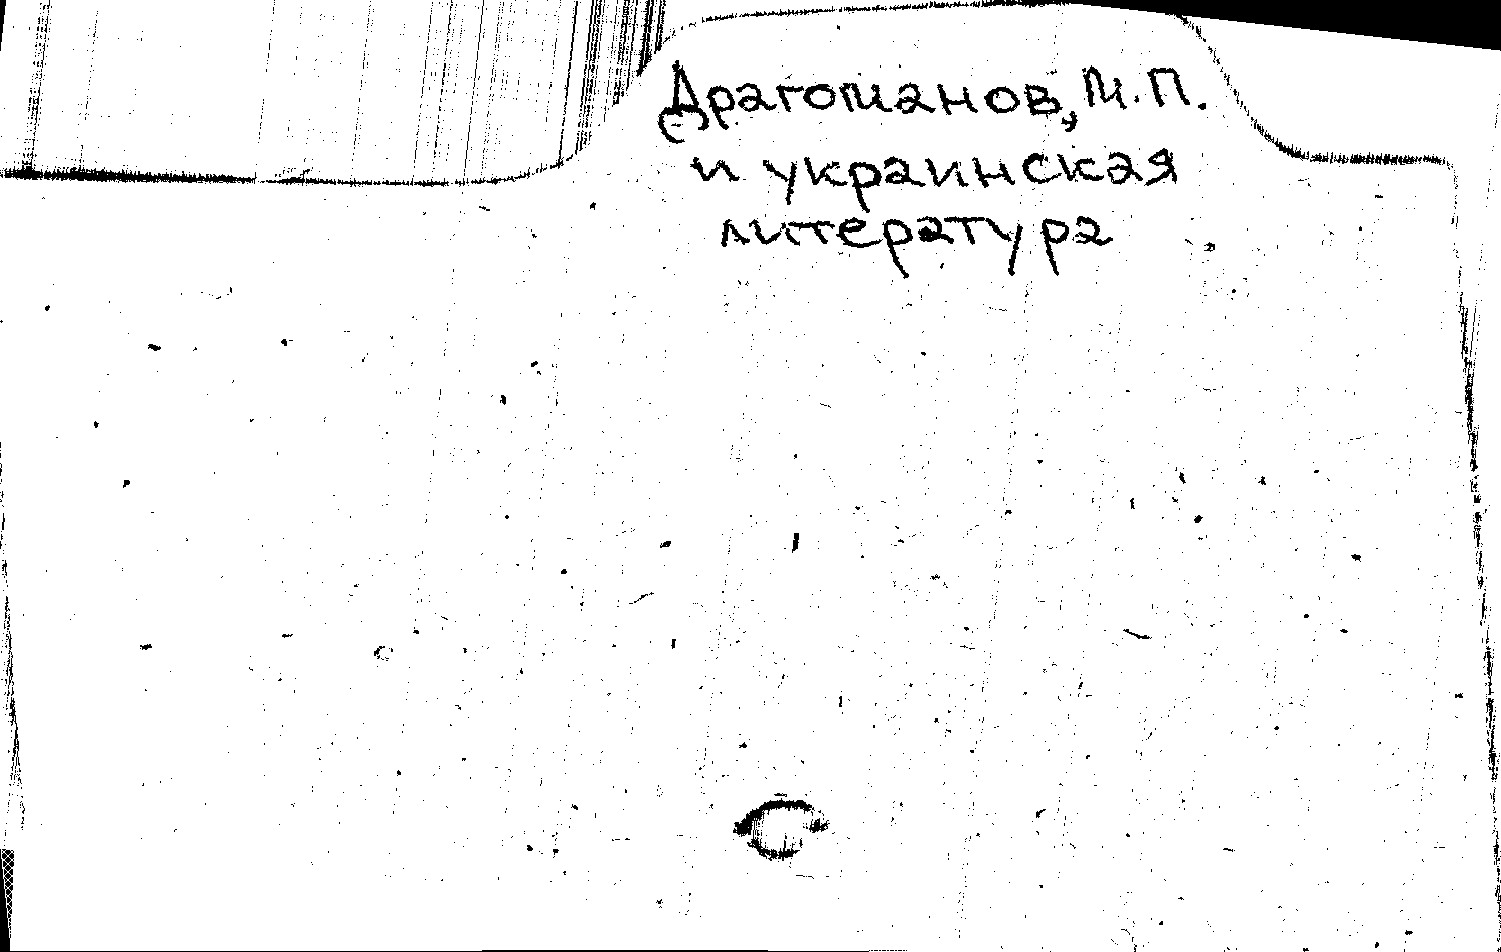 Драгоманов, М.П.
и украинская
литература